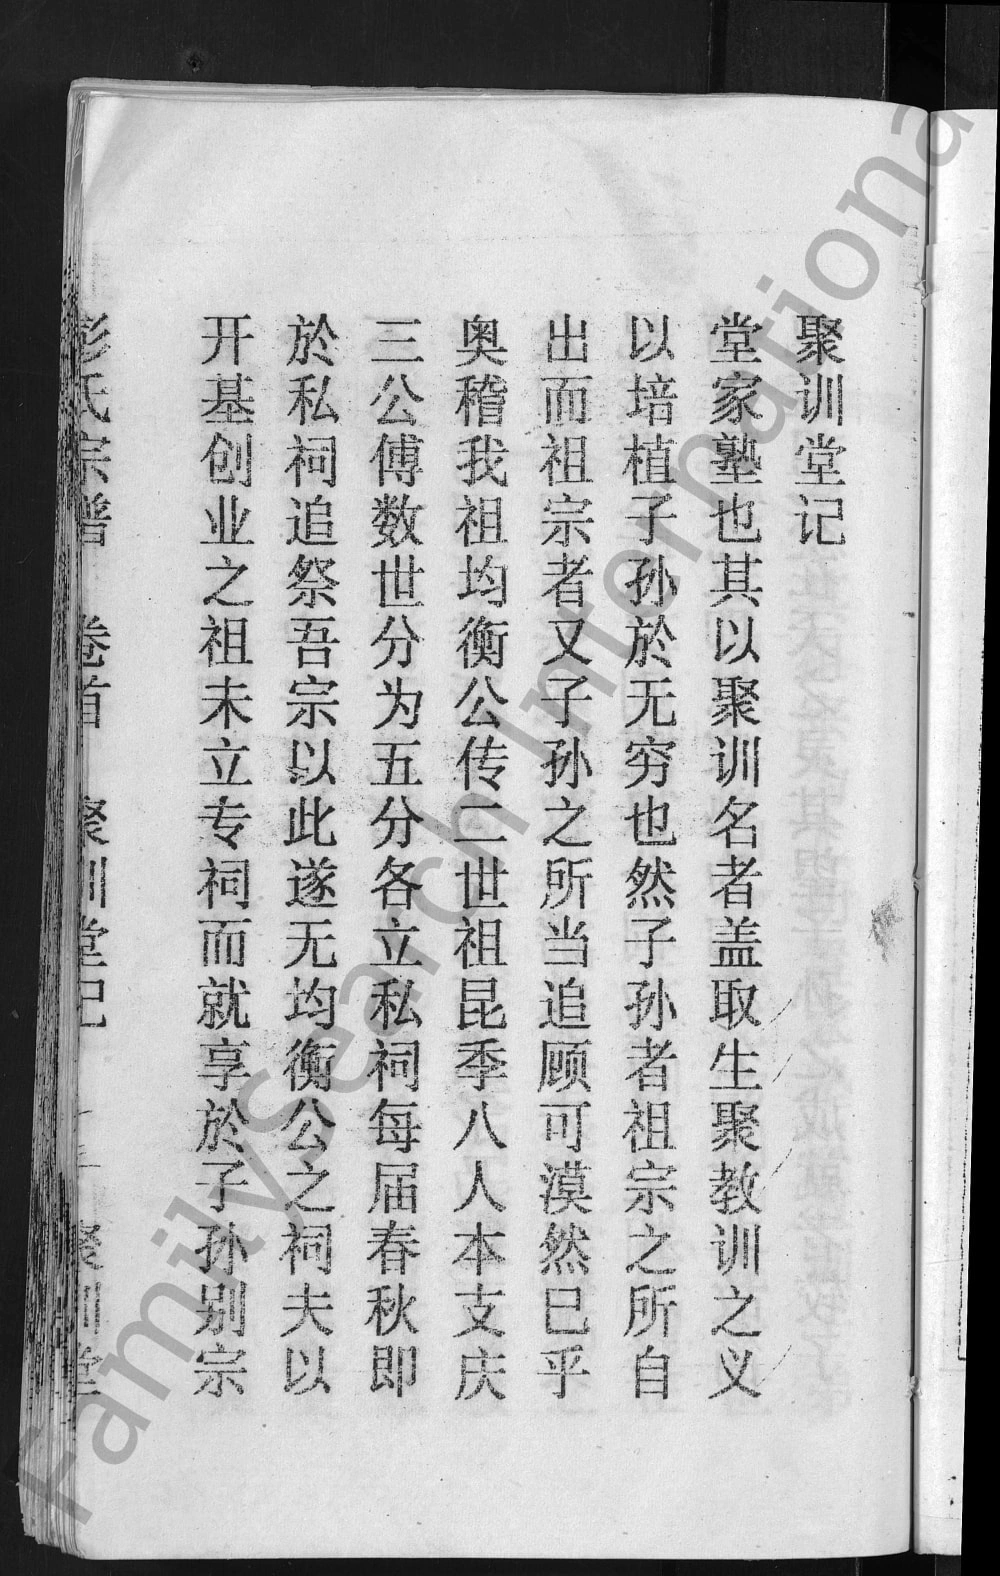 聚训堂记
堂家塾也其以聚训名者盖取生聚教训之义
以培植子孙於无穷也然子孙者祖宗之所自
出而祖宗者又子孙之所当追顾可漠然已乎
奥稽我祖均衡公传二世祖昆季八人本支庆
三公傅数世分为五分各立私祠每届春秋即
於私祠追祭吾宗以此遂无均衡公之祠夫以
开基创业之祖未立专祠而就享於子孙别宗
彭氏宗谱 卷首 聚训堂记 聚训堂
FamilySearch International